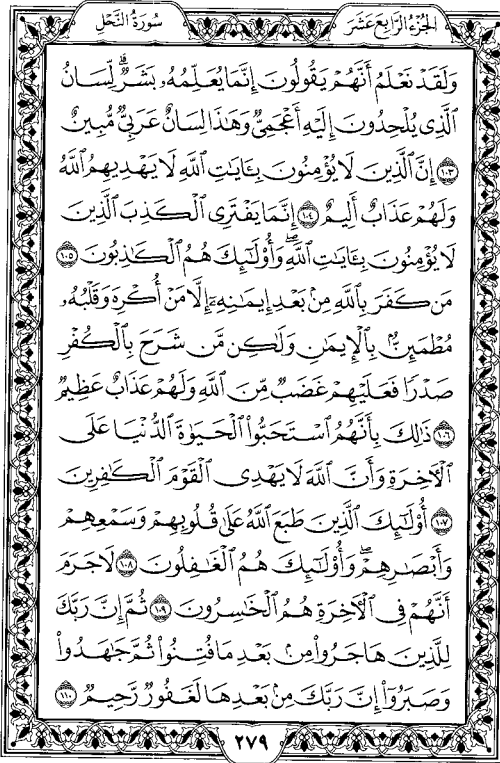 الجزء الرابع عشر
سورة النحل
وَلَقَدْ نَعْلَمُ أَنَّهُمْ يَقُولُونَ إِنَّمَا يُعَلِّمُهُۥ بَشَرٌۗ لِّسَانُ
ٱلَّذِى يُلْحِدُونَ إِلَيْهِ أَعْجَمِىٌّ وَهَٰذَا لِسَانٌ عَرَبِىٌّ مُّبِينٌ
١٠٣ إِنَّ ٱلَّذِينَ لَا يُؤْمِنُونَ بِـَٔايَٰتِ ٱللَّهِ لَا يَهْدِيهِمُ ٱللَّهُ
وَلَهُمْ عَذَابٌ أَلِيمٌ ١٠٤ إِنَّمَا يَفْتَرِى ٱلْكَذِبَ ٱلَّذِينَ
لَا يُؤْمِنُونَ بِـَٔايَٰتِ ٱللَّهِۖ وَأُو۟لَٰٓئِكَ هُمُ ٱلْكَٰذِبُونَ ١٠٥
مَن كَفَرَ بِٱللَّهِ مِنۢ بَعْدِ إِيمَٰنِهِۦٓ إِلَّا مَنْ أُكْرِهَ وَقَلْبُهُۥ
مُطْمَئِنٌّۢ بِٱلْإِيمَٰنِ وَلَٰكِن مَّن شَرَحَ بِٱلْكُفْرِ
صَدْرًا فَعَلَيْهِمْ غَضَبٌ مِّنَ ٱللَّهِ وَلَهُمْ عَذَابٌ عَظِيمٌ
١٠٦ ذَٰلِكَ بِأَنَّهُمُ ٱسْتَحَبُّوا۟ ٱلْحَيَوٰةَ ٱلدُّنْيَا عَلَى
ٱلْءَاخِرَةِ وَأَنَّ ٱللَّهَ لَا يَهْدِى ٱلْقَوْمَ ٱلْكَٰفِرِينَ
١٠٧ أُو۟لَٰٓئِكَ ٱلَّذِينَ طَبَعَ ٱللَّهُ عَلَىٰ قُلُوبِهِمْ وَسَمْعِهِمْ
وَأَبْصَٰرِهِمْۖ وَأُو۟لَٰٓئِكَ هُمُ ٱلْغَٰفِلُونَ ١٠٨ لَا جَرَمَ
أَنَّهُمْ فِى ٱلْءَاخِرَةِ هُمُ ٱلْخَٰسِرُونَ ١٠٩ ثُمَّ إِنَّ رَبَّكَ
لِلَّذِينَ هَاجَرُوا۟ مِنۢ بَعْدِ مَا فُتِنُوا۟ ثُمَّ جَٰهَدُوا۟
وَصَبَرُوٓا۟ إِنَّ رَبَّكَ مِنۢ بَعْدِهَا لَغَفُورٌ رَّحِيمٌ ١١٠
٢٧٩